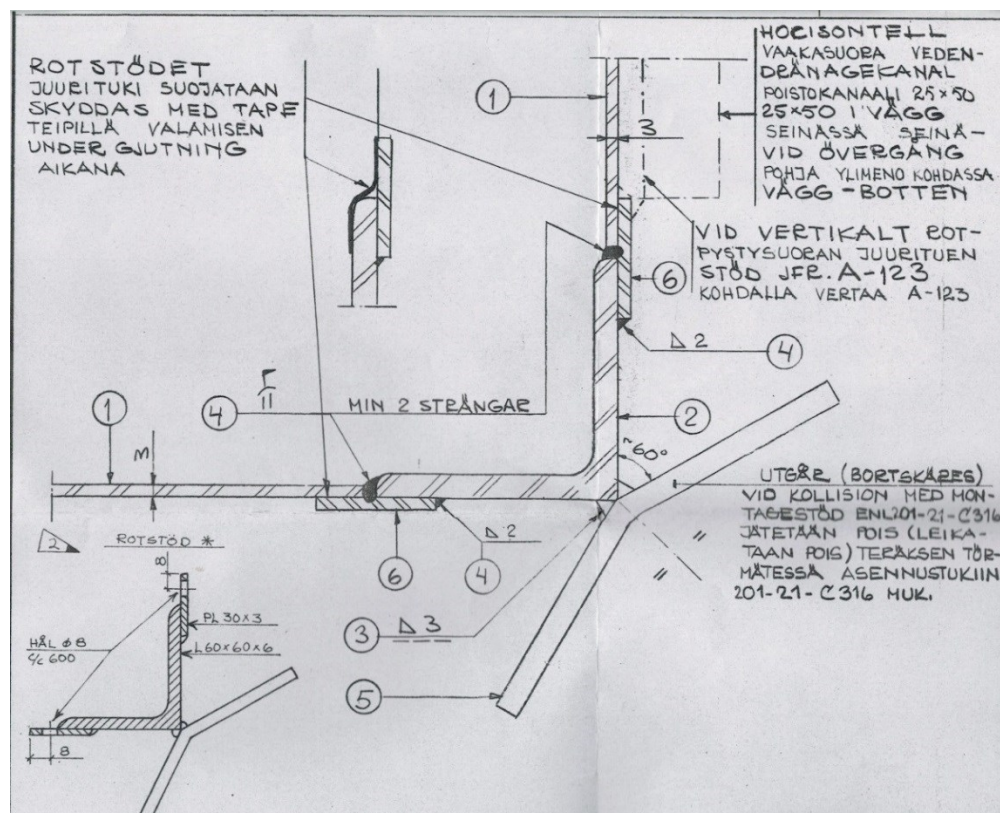 ROTSTÖDET
JUURITUKI SUOJATAAN
SKYDDAS MED TAPE
TEIPILLÄ VALAMISEN
UNDER GJUTNING
AIKANA
HOCISONTELL
VAAKASUORA VEDEN-
DRÄNAGEKANAL
POISTOKANAALI 25×50
25×50 I VÄGG
SEINÄSSÄ SEINÄ-
VID ÖVERGÅNG
POHJA YLIMENO KOHDASSA
VÄGG-BOTTEN
1
3
VID VERTIKALT ROT-
PYSTYSUORAN JUURITUEN
STÖD JFR. A-123
KOHDALLA VERTAA A-123
6
2
4
4
MIN 2 STRÄNGAR
2
1
3
~60°
UTGÅR (BORTSKÄRES)
VID KOLLISION MED MON-
TAGESTÖD ENL201-21-C316
JÄTETÄÄN POIS (LEIKA-
TAAN POIS) TERÄKSEN TÖR-
MÄTESSÄ ASENNUSTUKIIN
201-21-C316 MUK.
2
6
4
2
ROTSTÖD *
8
PL 30×3
L60×60×6
HÅL ø8
C/C 600
8
3
3
5